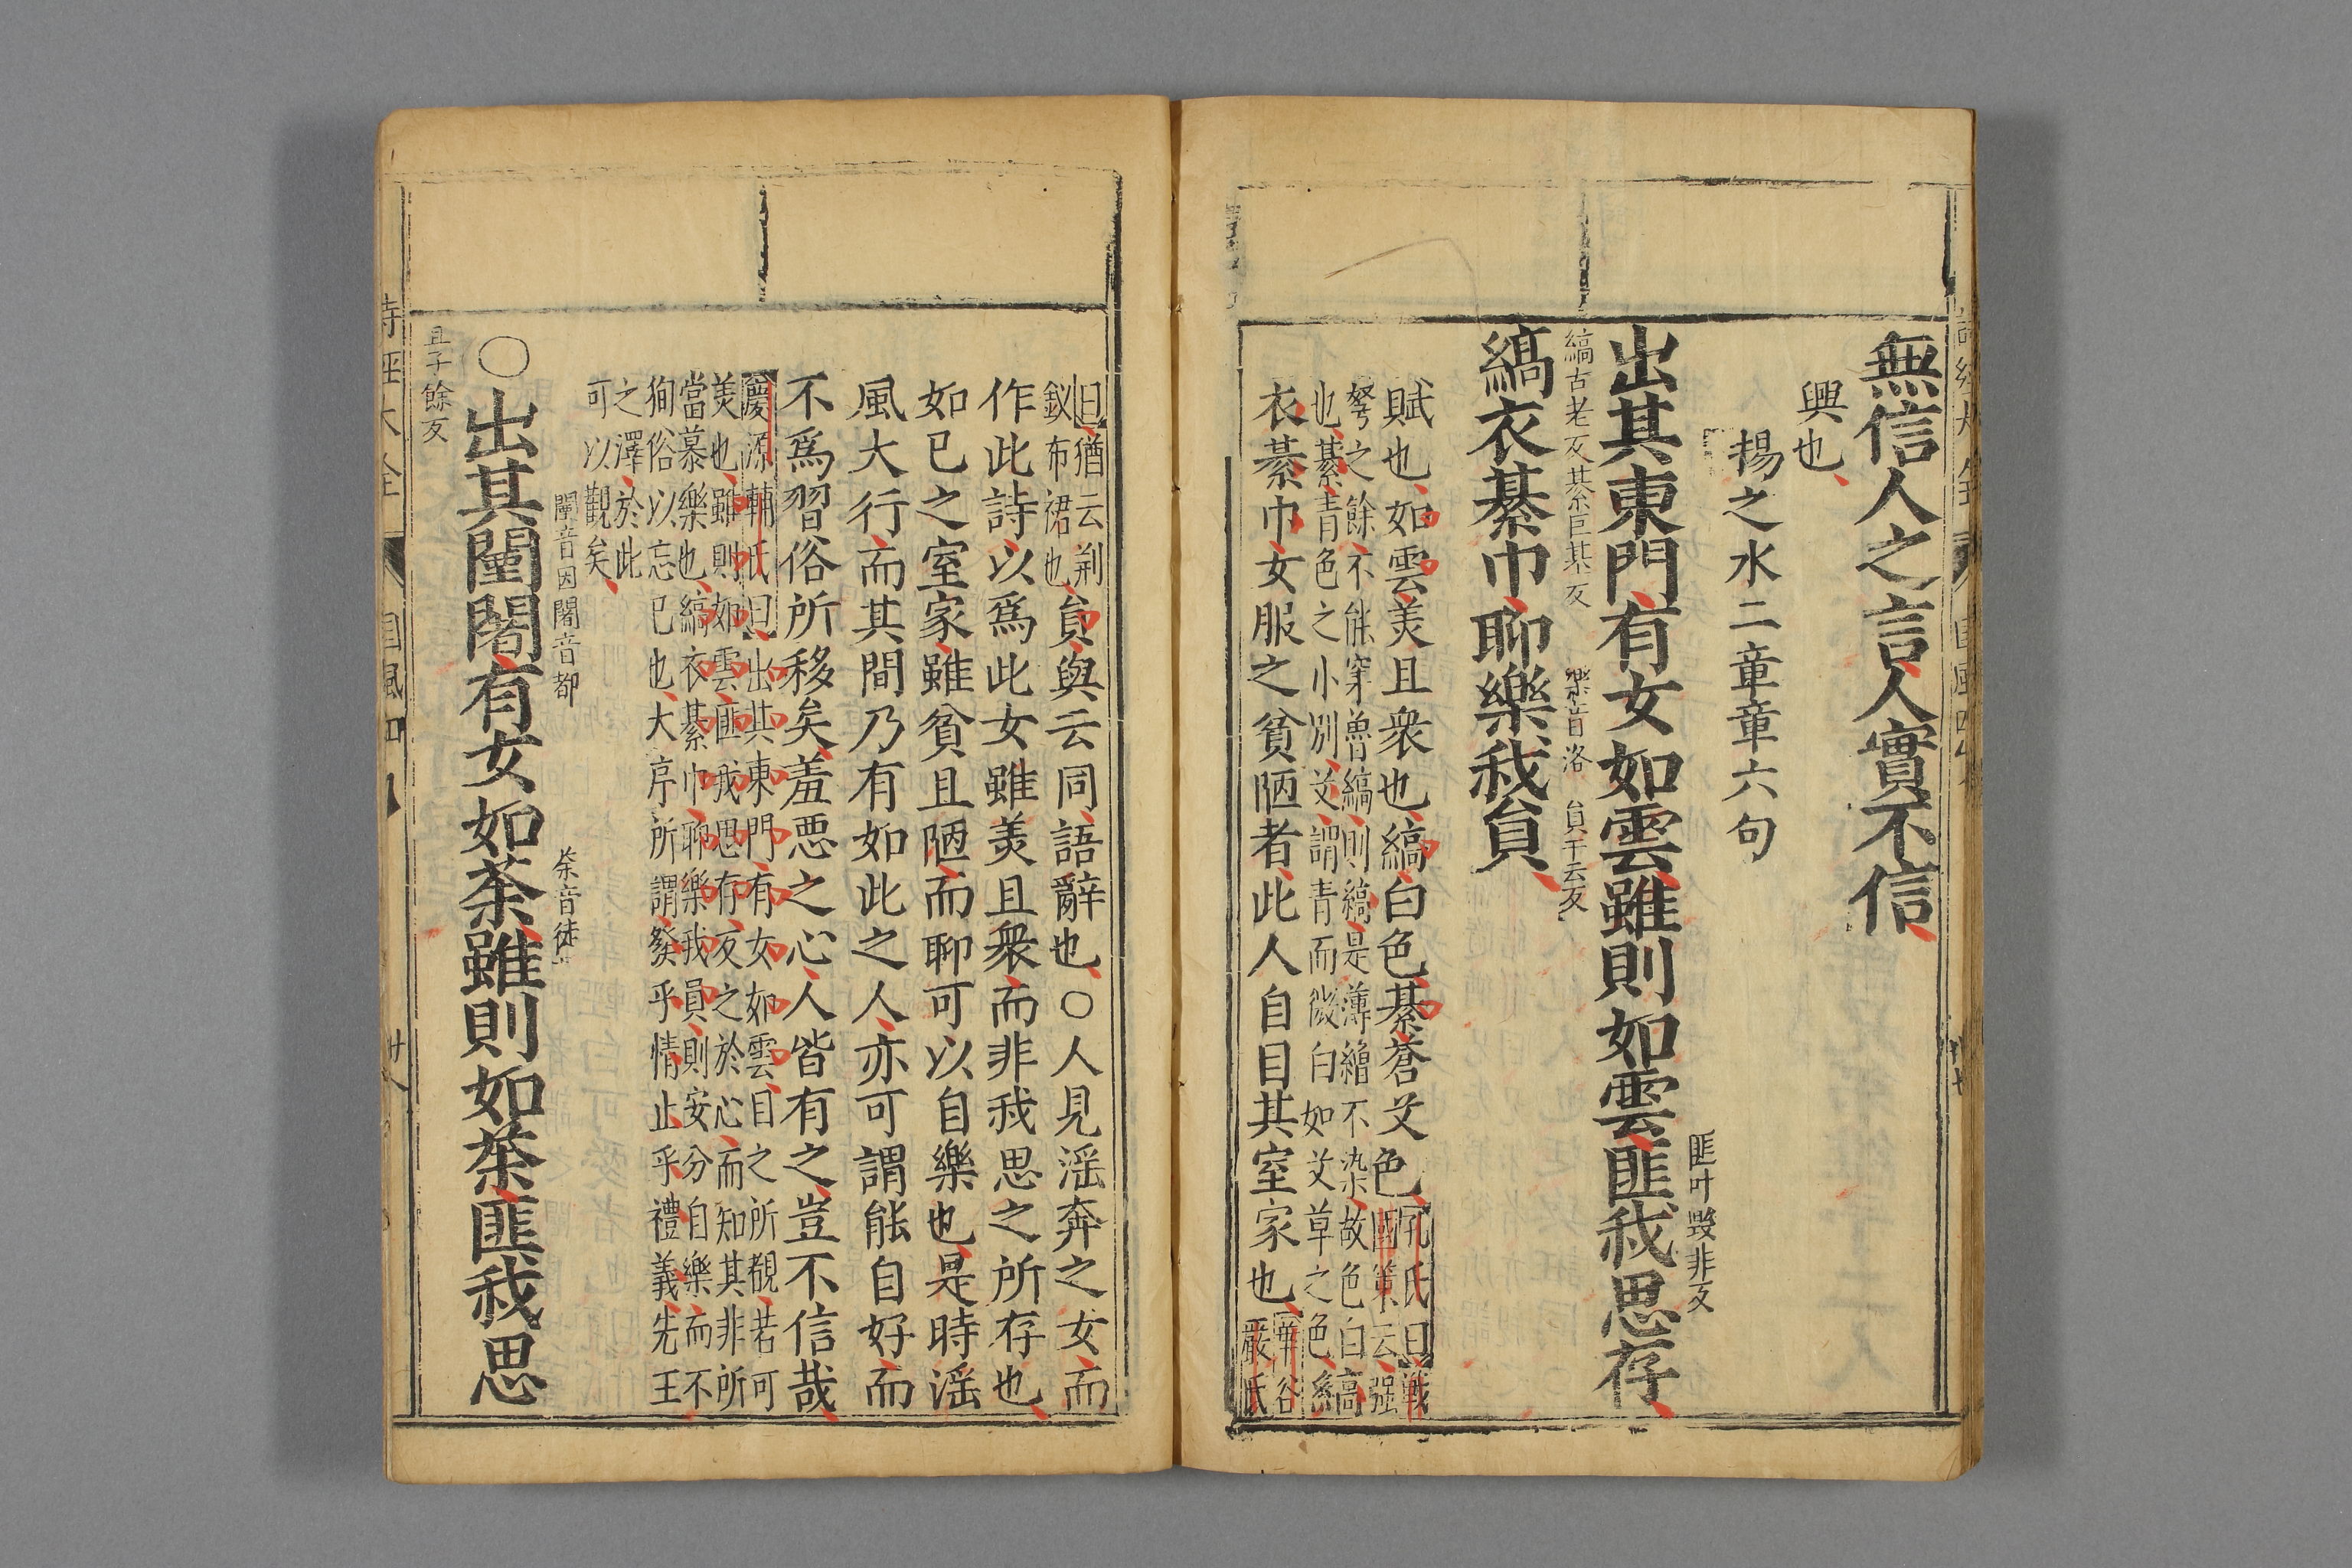 無信人之言人實不信
興也
揚之水二章章六句
出其東門有女如雲雖則如雲匪我思存
匪叶毀非反
縞古老反綦巨基反 樂音洛 貟于云反
縞衣綦巾聊樂我貟
賦也如雲美且衆也縞白色綦蒼艾色
孔氏曰戰
國策云强
弩之餘不能穿魯縞則縞是薄繒不染故色白縞
也綦青色之小別艾謂青而微白如艾草之色
衣綦巾女服之貧陋者此人自目其室家也
華谷
嚴氏
曰猶云荆
釵布裙也
貟與云同語辭也○人見滛奔之女而
作此詩以爲此女雖美且衆而非我思之所存也
如己之室家雖貧且陋而聊可以自樂也是時滛
風大行而其間乃有如此之人亦可謂能自好而
不爲習俗所移矣羞惡之心人皆有之豈不信哉
慶源輔氏曰出其東門有女如雲目之所覩若可
美也雖則如雲匪我思存反之於心而知其非所
當慕樂也縞衣綦巾聊樂我員則安分自樂而不
狥俗以忘己也大序所謂發乎情止乎禮義先王
之澤於此
可以觀矣
闉音因闍音都 荼音徒
○出其闉闍有女如荼雖則如荼匪我思
且子餘反